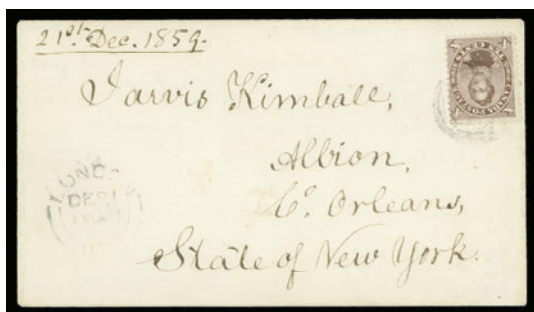 21st. Dec. 1859.
Jarvis Kimball,
Albion,
Co. Orleans,
State of New York.